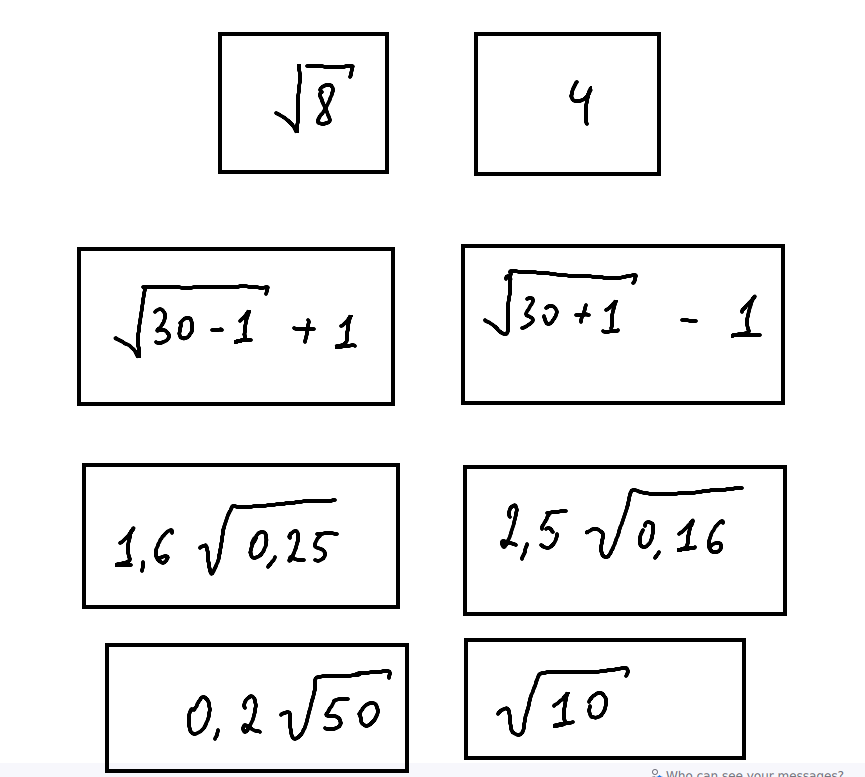 √8 4
√(30 - 1) + 1 √(30 + 1) - 1
1,6 √0,25 2,5 √0,16
0,2 √50 √10
Who can see your messages?